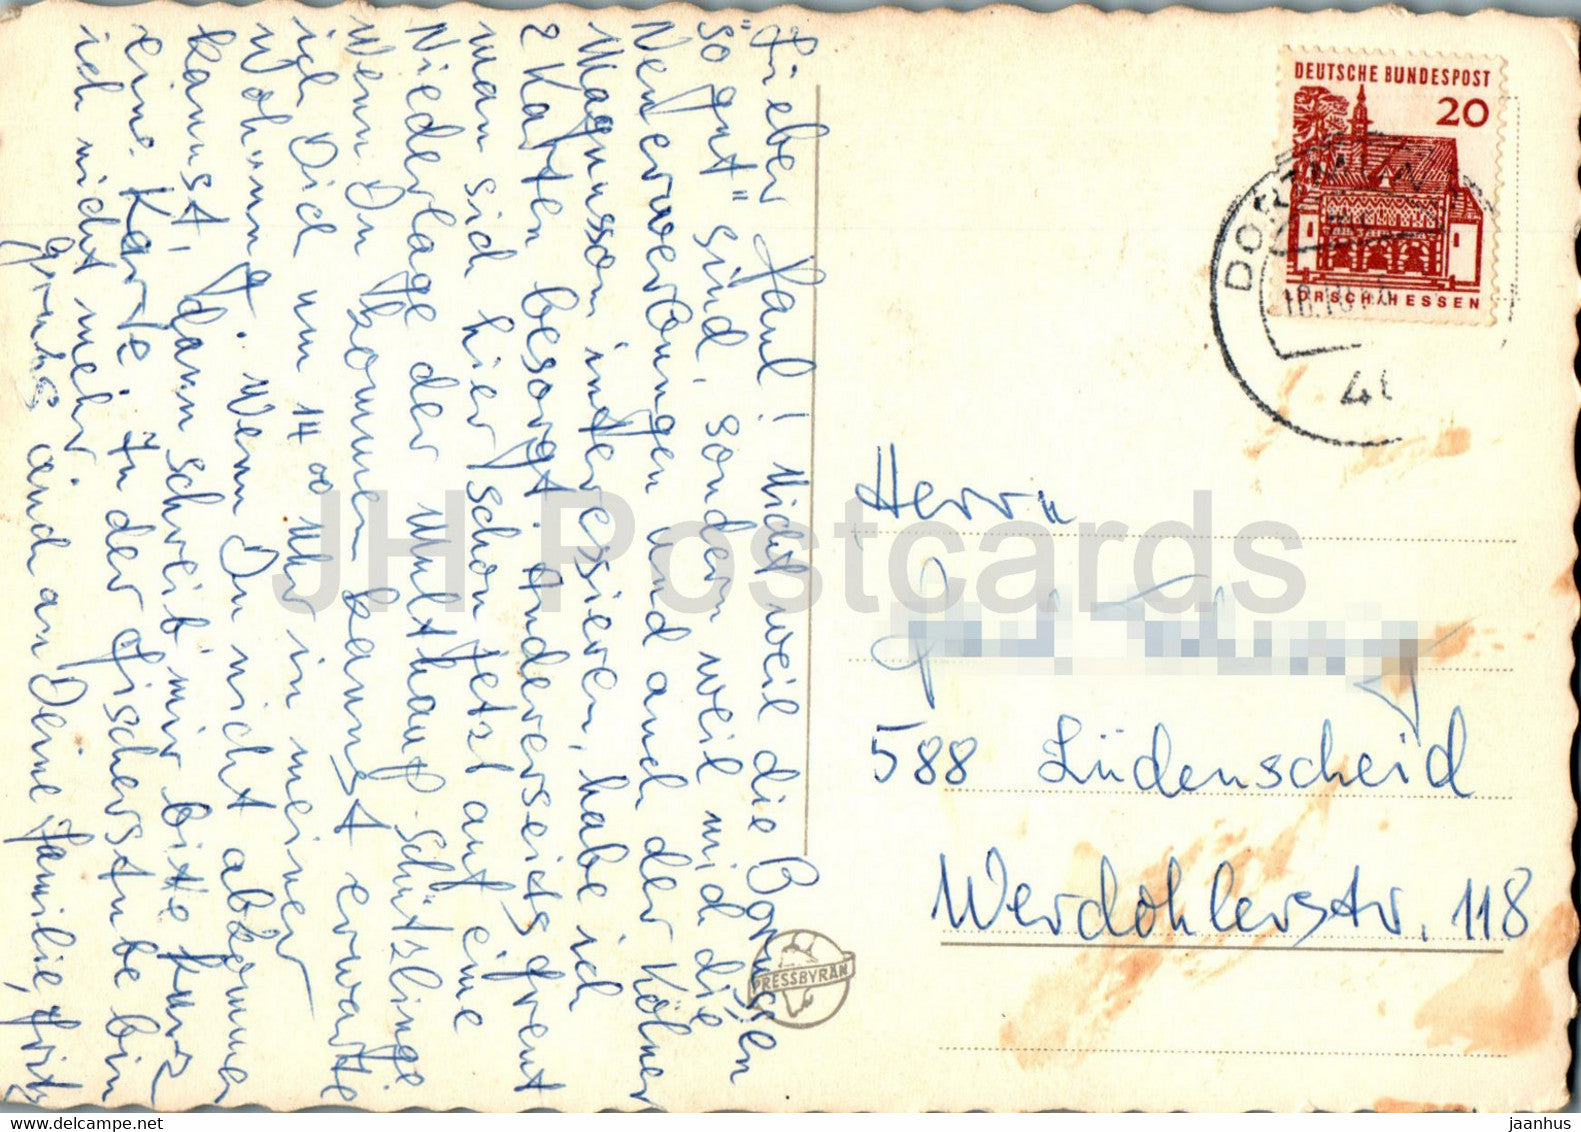 Lieber Paul! Nicht weil die Borussen
"so gut" sind, sondern weil mich die
Neuerwerbungen und auch der Kölner
Magnusson interessieren, habe ich
2 Karten besorgt. Andererseits freut
man sich hier schon jetzt auf eine
Niederlage der Multhaup-Schützlinge
Wenn Du kommen kannst erwarte
ich Dich um 14⁰⁰ Uhr in meiner
Wohnung. Wenn Du nicht abkommen
kannst, dann schreib mir bitte kurz
eine Karte. In der Fischerstube bin
ich nicht mehr.
Gruß auch an Deine Familie, Fritz
DEUTSCHE BUNDESPOST
20
LORSCH/HESSEN
DORTMUN
46
Herrn
588 Lüdenscheid
Werdohlerstr. 118
PRESSBYRÅN
JH Postcards
hippostcard.com
jaanhus